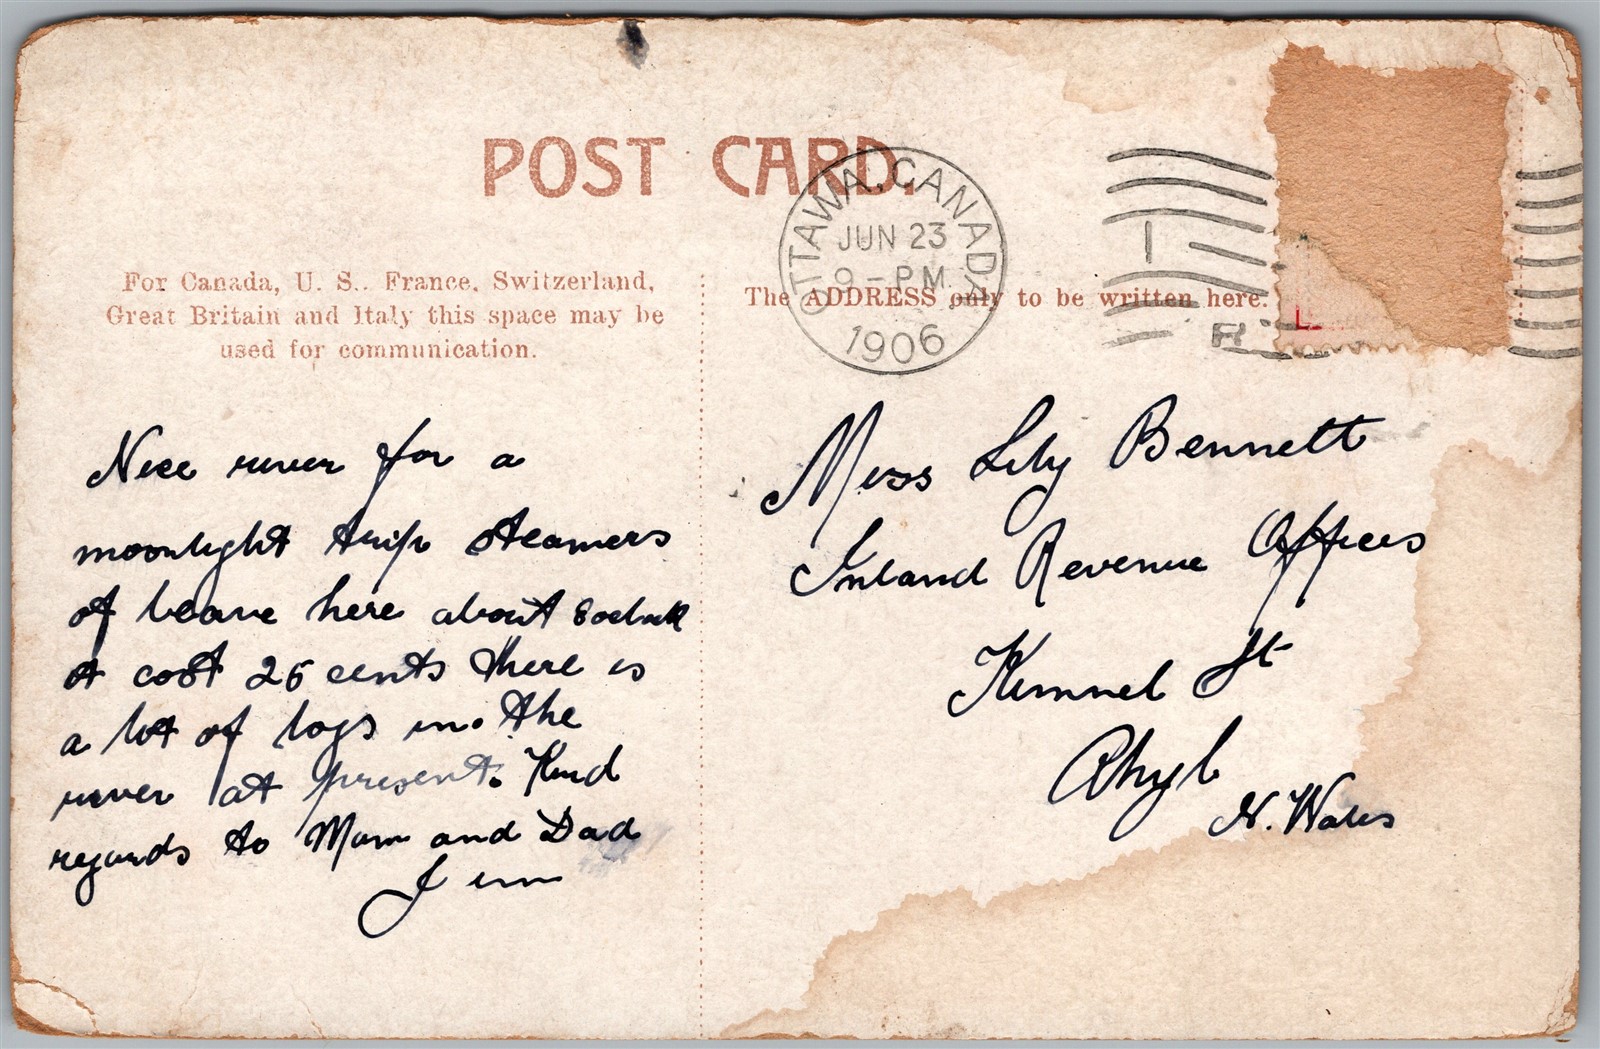 POST CARD.
OTTAWA, CANADA
JUN 23
9 - PM
1906
For Canada, U. S., France, Switzerland,
Great Britain and Italy this space may be
used for communication.
The ADDRESS only to be written here.
Nice river for a
moonlight trip steamers
of leave here about 8 oclock
it cost 25 cents there is
a lot of logs in the
river at present. Kind
regards to Mum and Dad
Jim
Miss Lily Bennett
Inland Revenue Offices
Kinmel St
Rhyl
N. Wales